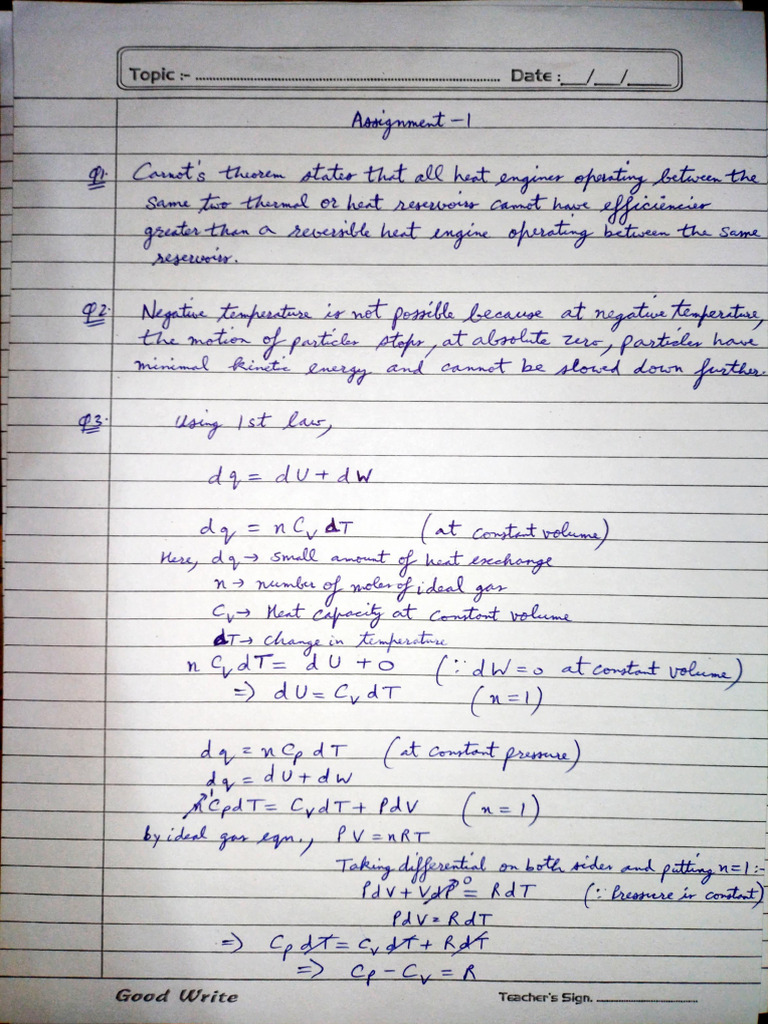 Topic :- ........................ Date : __/__/____
Assignment - 1
Q1. Carnot's theorem states that all heat engines operating between the
same two thermal or heat reservoirs cannot have efficiencies
greater than a reversible heat engine operating between the same
reservoirs.
Q2. Negative temperature is not possible because at negative temperature,
the motion of particles stops, at absolute zero, particles have
minimal kinetic energy and cannot be slowed down further.
Q3. Using 1st law,
dq = dU + dW
dq = nCv dT (at constant volume)
Here, dq → small amount of heat exchange
n → number of moles of ideal gas
Cv → Heat capacity at constant volume
dT → change in temperature
n Cv dT = dU + 0 (∵ dW = 0 at constant volume)
=> dU = Cv dT (n = 1)
dq = n Cp dT (at constant pressure)
dq = dU + dW
n 1 Cp dT = Cv dT + PdV (n = 1)
by ideal gas eqn., PV = nRT
Taking differential on both sides and putting n=1 :-
PdV + VdP 0 = RdT (∵ Pressure is constant)
PdV = RdT
=> Cp dT = Cv dT + RdT
=> Cp - Cv = R
Good Write Teacher's Sign. ........................